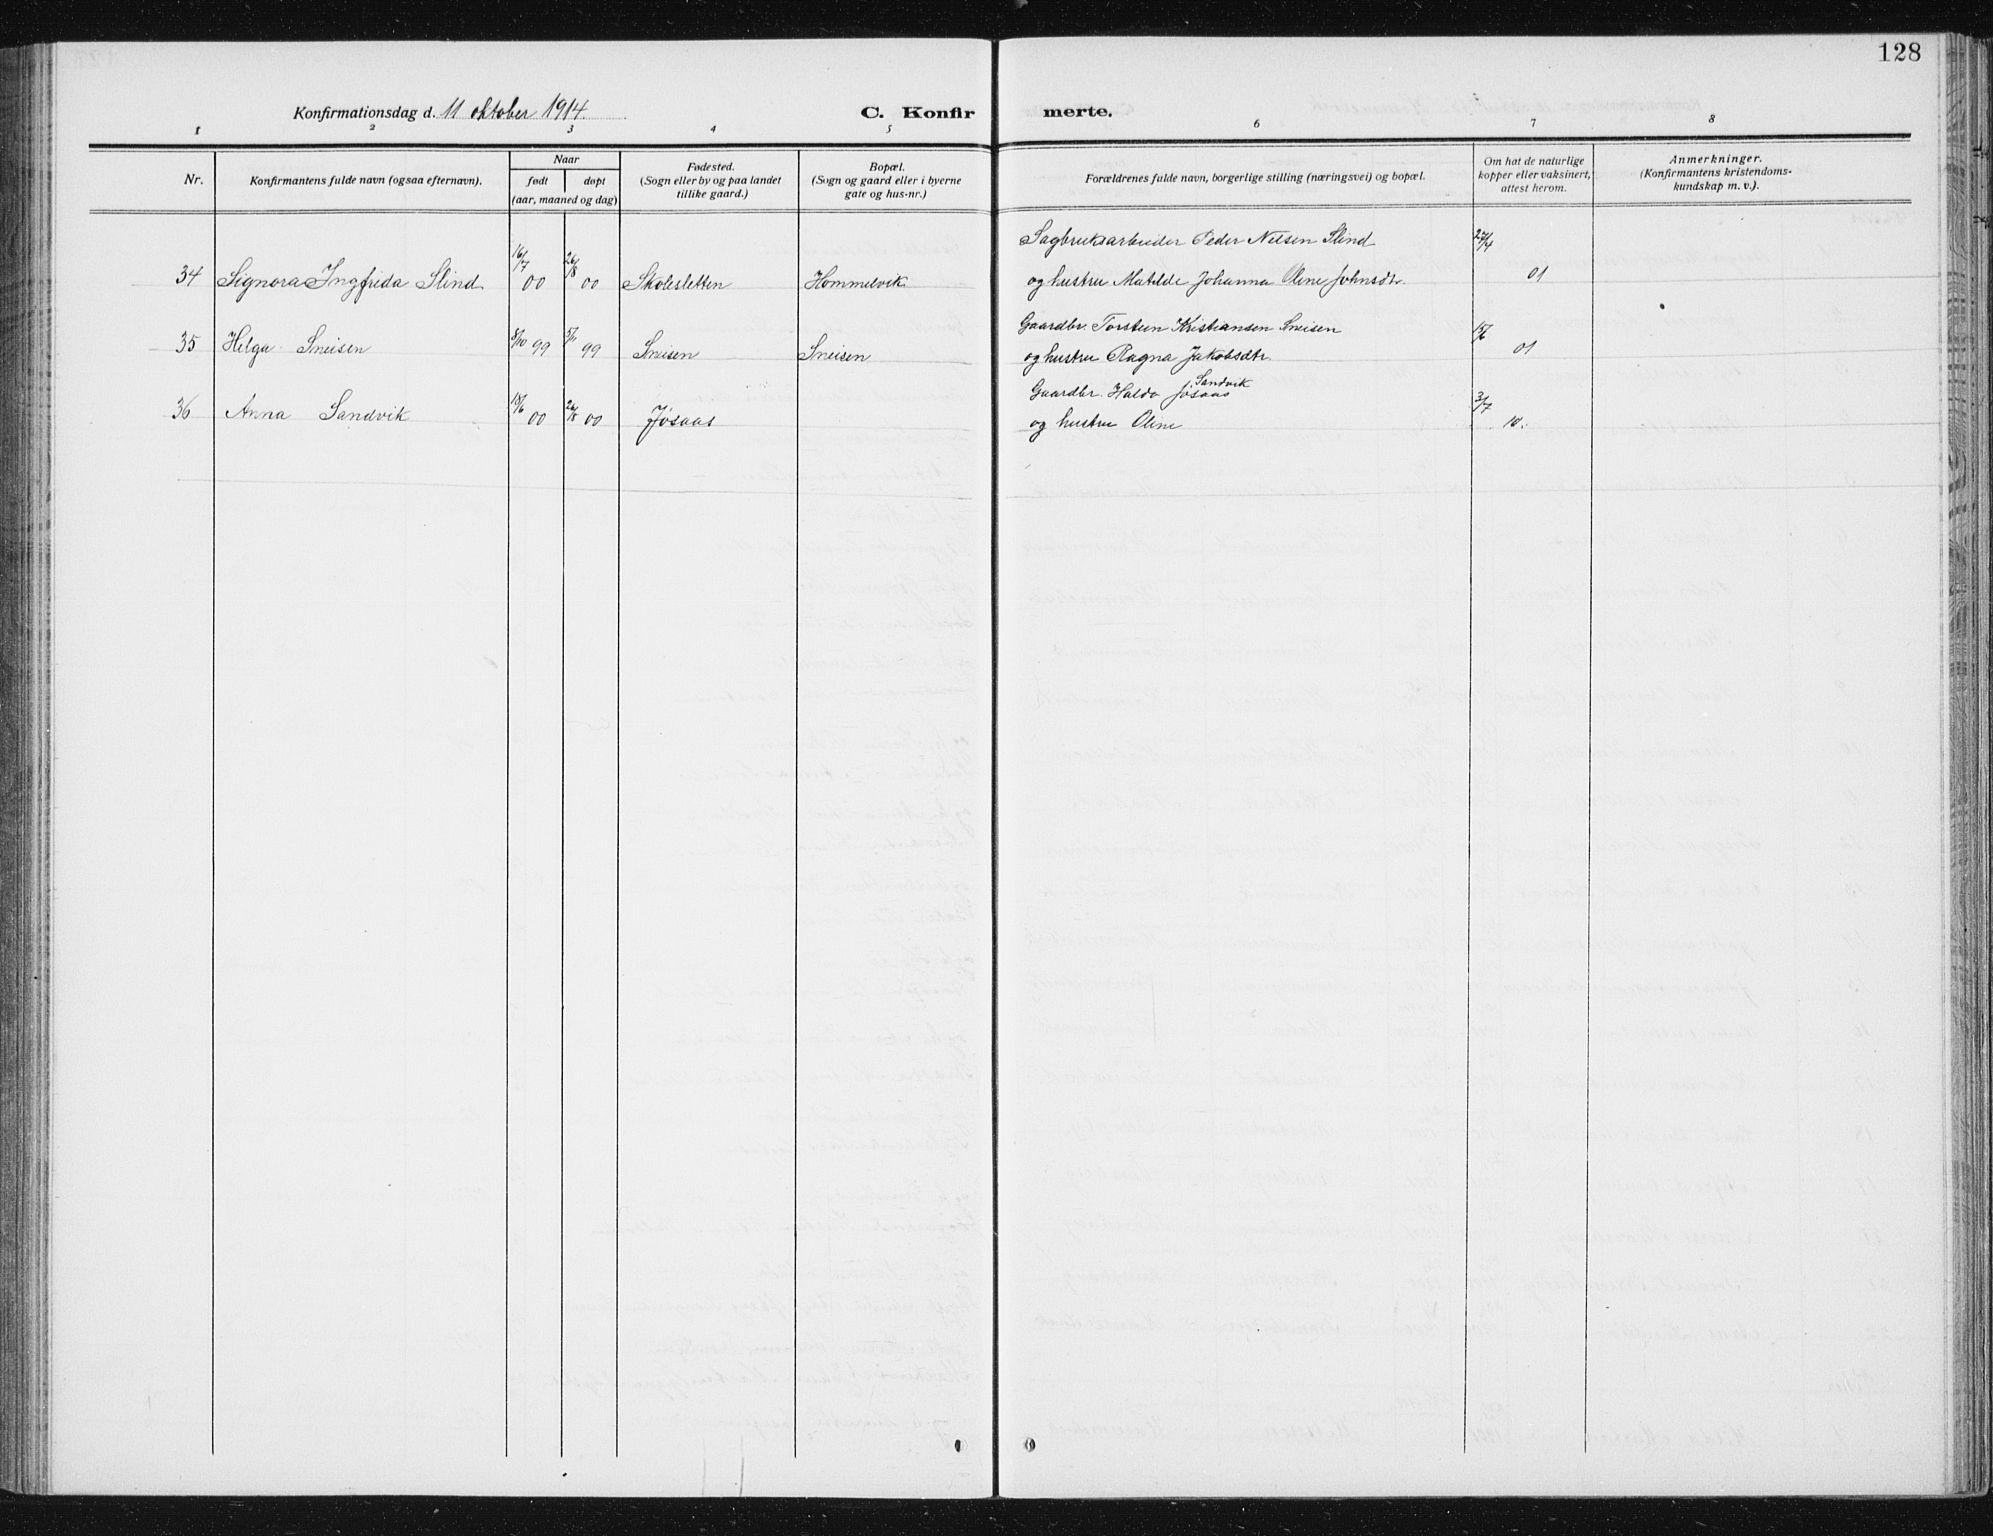 128
Konfirmationsdag d. 11 oktober 1914. C. Konfirmerte.
1 2 3 4 5 6 7 8
Nr.
Konfirmantens fulde navn (ogsaa efternavn).
Naar
født døpt
(aar, maaned og dag)
Fødested.
(Sogn eller by og paa landet
tillike gaard.)
Bopæl.
(Sogn og gaard eller i byerne
gate og hus-nr.)
Forældrenes fulde navn, borgerlige stilling (næringsvei) og bopæl.
Om hat de naturlige
kopper eller vaksinert,
attest herom.
Anmerkninger.
(Konfirmantens kristendoms-
kundskap m. v.).
Sagbruksarbeider Peder Nilsen Slind
34 Signora Ingfrida Slind 16/7 00 26/8 00 Skolesletten Hommelvik og hustru Matilde Johanna Oline Johnsdtr. 27/4 01
Gaardbr. Torstein Kristiansen Sneisen
35 Helga Sneisen 8/10 99 5/11 99 Sneisen Sneisen og hustru Ragna Jakobsdtr. 01
Sandvik
Gaardbr. Haldo Jøsaas
36 Anna Sandvik 18/6 00 26/8 00 Jøsaas og hustru Oline 3/7 10.